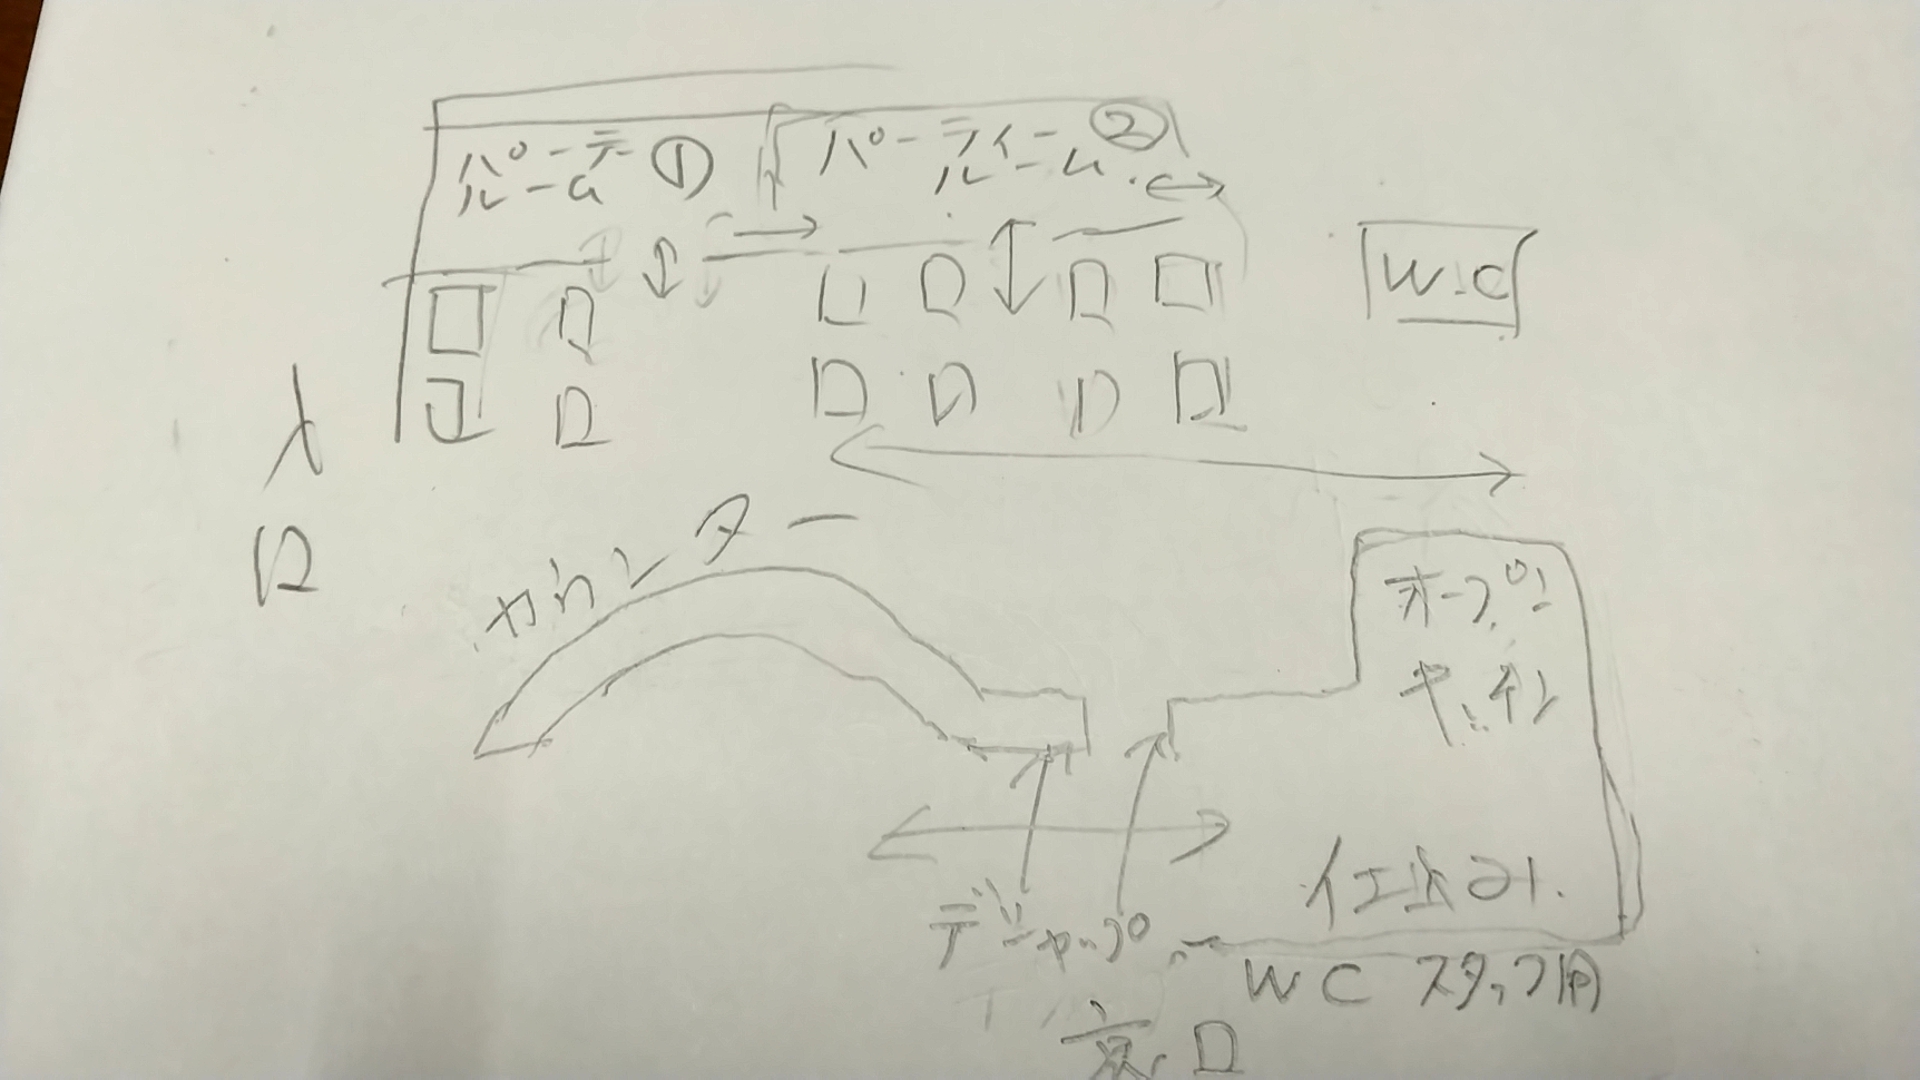 パーテー ①
ルーム
パーティー ②
ルーム
W.C
入
口
カウンター
オープン
キッチン
仕込み
デシャップ
WC スタッフ用
裏口